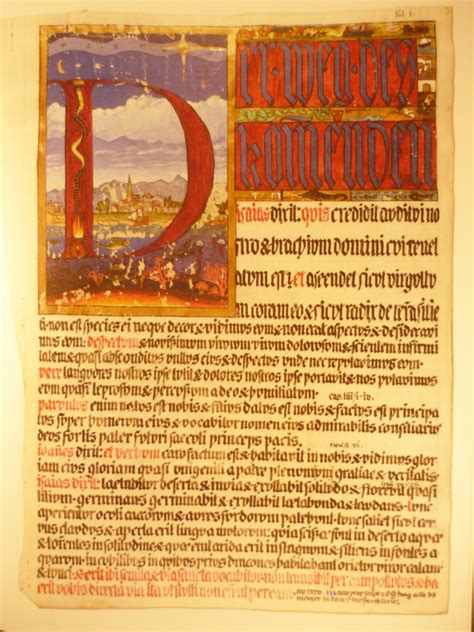 fol. i
Der Weg des
Komenden
isaias dixit: quis credidit auditui no
stro & brachium domini cui revel
atum est: et ascendet sicut virgultu
m coram eo & sicut radix de terra sitie
ti. non est species ei neque decor & vidimus eum & non erat aspectus & desideravi
mus eum: despectum & novissimum virorum virum dolorum & scientem infirmi
tatem & quasi absconditus vultus eius & despectus unde nec reputavimus eum.
vere languores nostros ipse tulit & dolores nostros ipse portavit & nos putavimus
eum quasi leprosum & percussum a deo & humiliatum. cap. liii/i-iv.
parvulus enim natus est nobis & filius datus est nobis & factus est principa
tus super humerum eius & vocabitur nomen eius admirabilis consiliarius
deus fortis pater futuri saeculi princeps pacis. caput ix vi.
ioanes dixit: et verbum caro factum est & habitavit in nobis & vidimus glori
am eius gloriam quasi unigeniti a patre plenum gratiae & veritatis.
isaias dixit: laetabitur deserta & invia & exultabit solitudo & florebit quasi
lilium. germinans germinabit & exultabit laetabunda & laudans. tunc
aperientur oculi caecorum & aures surdorum patebunt. tunc saliet sicut cer
vus claudus & aperta erit lingua mutorum: quia scissae sunt in deserto aquae
& torrentes in solitudine & quae erat arida erit in stagnum & sitiens in fontes
aquarum. in cubilibus in quibus prius dracones habitabant orietur viror calam
i & iunci. & erit ibi semita & via & via sancta vocabitur. non transibit per eam pollutus & haec
erit vobis directa via ita ut stulti non errent per eam. cap. xxxv.